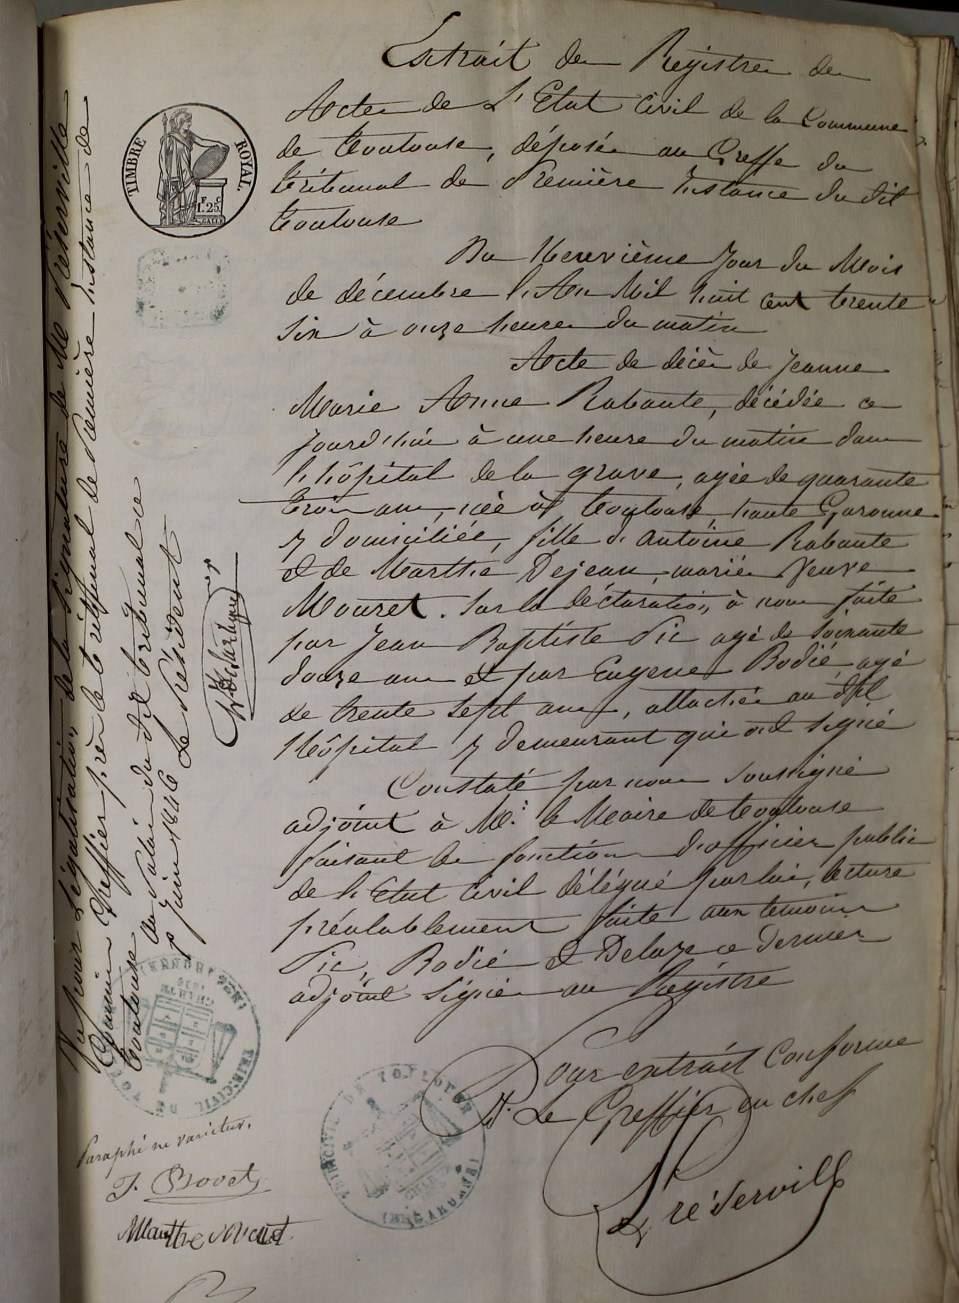 Extrait des Registres des
Actes de L'Etat Civil de la Commune
de Toulouse, déposés au Greffe du
tribunal de Première Instance du dit
Toulouse
Du Neuvième Jour du Mois
de décembre l'An Mil huit cent trente
Six à onze heures du matin
Acte de décès de Jeanne
Marie Anne Rabaute, décédée ce
Jourd'hui à une heure du matin dans
l'hôpital de la grave, agée de quarante
trois ans, née à Toulouse haute Garonne
y domiciliée, fille d'Antoine Rabaute
et de Marthe Dejean, mariée Veuve
Mouret. Sur la déclaration à nous faite
par Jean Baptiste Pic agé de Soixante
douze ans et par Eugene Bodié agé
de trente Sept ans, attachés au dit
Hôpital y demeurant qui ont signé
Constaté par nous Soussigné
adjoint à Mr. le Maire de Toulouse
faisant les fonctions d'officier public
de l'Etat Civil délégué par lui, lecture
préalablement faite aux temoins
Pic, Bodié et Delaze ce dernier
adjoint Signés au Registre
Pour extrait Conforme
Le Greffier en chef
Préserville
TIMBRE ROYAL
F C
1.25
Vu pour Légalisation de la Signature de Me Préserville
Commis Greffier près le tribunal de Première Instance de
Toulouse
au Palais du dit tribunal ce
Juin 1846 Le Président
TRIB. CIVIL DE TOULOUSE
Paraphé ne varietur,
J. Bovet
Marthe Mouret